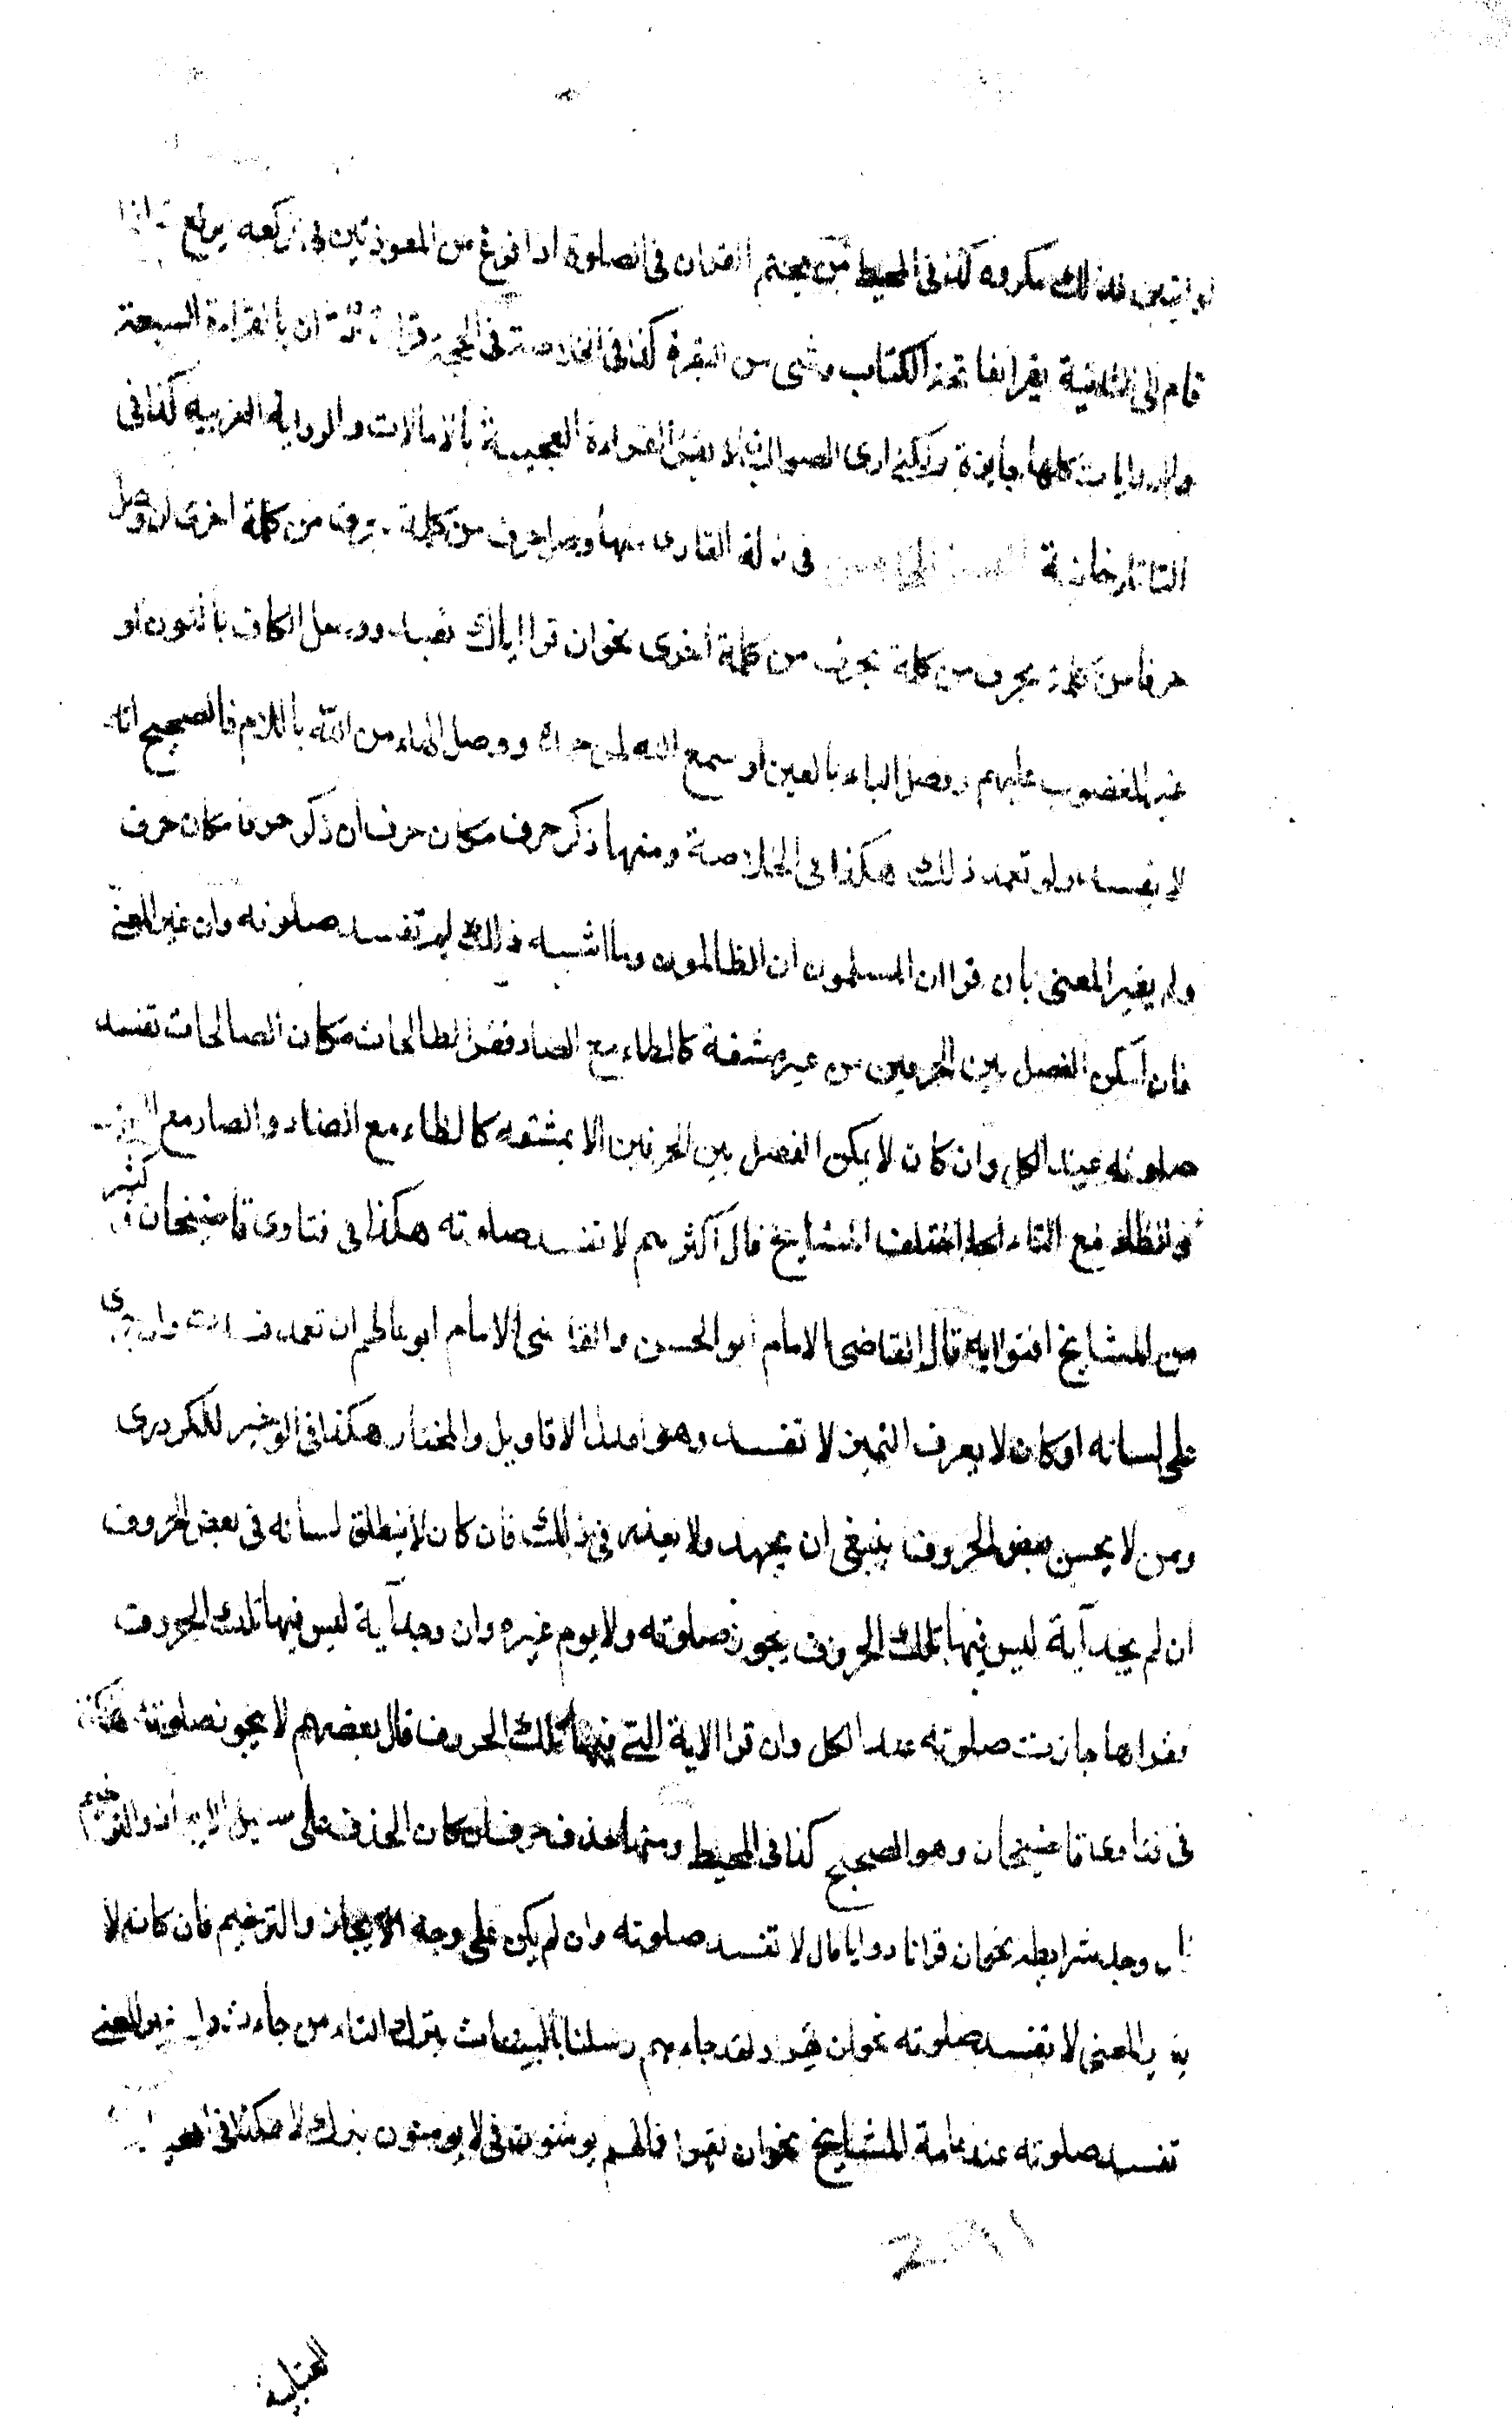 او ايتين فذلك مكروه كذا فى المحيط من يختم القران فى الصلوة اذا فرغ من المعوذتين فى ركعة يركع ثم اذا
قام الى الثانية يقرا بفاتحة الكتاب وشى من البقرة كذا فى الخلاصة فى الحجة قراءة القران بالقراءة السبعة
والروايات كلها جايزة ولكنى ارى الصواب ان لا يقرا القراءة العجيبة بالامالات والرواية الغريبة كذا فى
التاتارخانية الفصل الخامس فى زلة القارى منها وصل حرف من كلمة بحرف من كلمة اخرى ان وصل
حرفا من كلمة بحرف من كلمة بحرف من كلمة اخرى نحو ان قرا اياك نعبد ووصل الكاف بالنون او
غير المغضوب عليهم ووصل الباء بالعين او سمع الله لمن حمده ووصل الهاء من الله باللام فالصحيح انه
لا يفسد ولو تعمد ذلك هكذا فى الخلاصة ومنها ذكر حرف مكان حرف ان ذكر حرفا مكان حرف
ولم يغير المعنى بان قرا ان المسلمون ان الظالمون وما اشبه ذلك لم تفسد صلوته وان غير المعنى
فان امكن الفصل بين الحرفين من غير مشقة كالطاء مع الصاد فقرا الطالحات مكان الصالحات تفسد
صلوته عند الكل وان كان لا يمكن الفصل بين الحرفين الا بمشقة كالظاء مع الضاد والصاد مع السين
والطاء مع التاء اختلف المشايخ قال اكثرهم لا تفسد صلوته هكذا فى فتاوى قاضيخان و كثير
من المشايخ افتوا به قال القاضى الامام ابو الحسن والقاضى الامام ابو عاصم ان تعمد فسدت وان جرى
على لسانه او كان لا يعرف التميز لا تفسد وهو اعدل الاقاويل والمختار هكذا فى الوجيز للكردرى
ومن لا يحسن بعض الحروف ينبغى ان يجهد ولا يعذر فى ذلك فان كان لا ينطلق لسانه فى بعض الحروف
ان لم يجد آية ليس فيها تلك الحروف يجوز صلوته ولا يوم غيره وان وجد آية ليس فيها تلك الحروف
فقراها جازت صلوته عند الكل وان قرا الاية التى فيها تلك الحروف قال بعضهم لا يجوز صلوته هكذا
فى فتاوى قاضيخان وهو الصحيح كذا فى المحيط ومنها حذف حرف ان كان الحذف على سبيل الايجاز والترخيم
فان وجد شرايطه نحو ان قرا نادوا يا مال لا تفسد صلوته وان لم يكن على وجه الايجاز والترخيم فان كان لا
يغير المعنى لا تفسد صلوته نحو ان يقرا ولقد جاءهم رسلنا بالبينات بترك التاء من جاءت وان غير المعنى
تفسد صلوته عند عامة المشايخ نحو ان يقرا فمالهم يومنون فى لا يومنون بترك لا هكذا فى المحيط